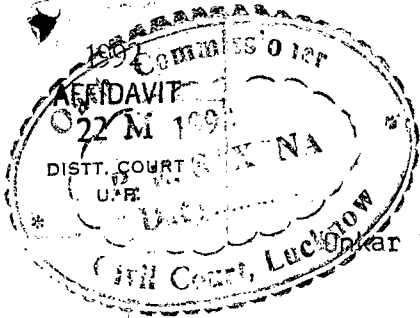 1992
Oath Commissioner
AFFIDAVIT
22 M 199
DISTT. COURT
U.P.
Date
Civil Court, Lucknow
Onkar